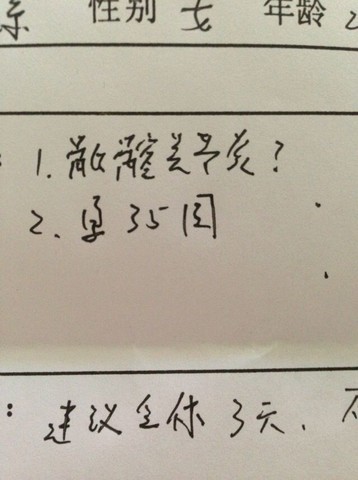 性别 女 年龄
: 1. 骶髂关节炎?
2. 孕35周
: 建议全休3天、